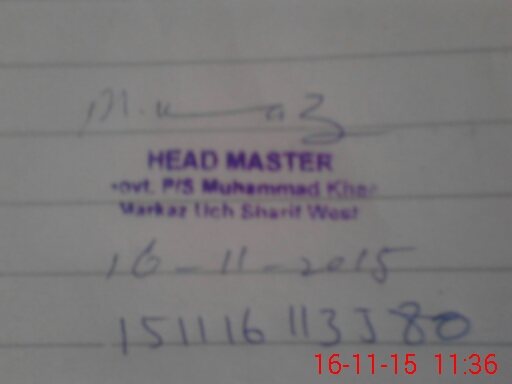 HEAD MASTER
Govt. P/S Muhammad Khan
Markaz Uch Sharif West
16-11-2015
16-11-15 11:36